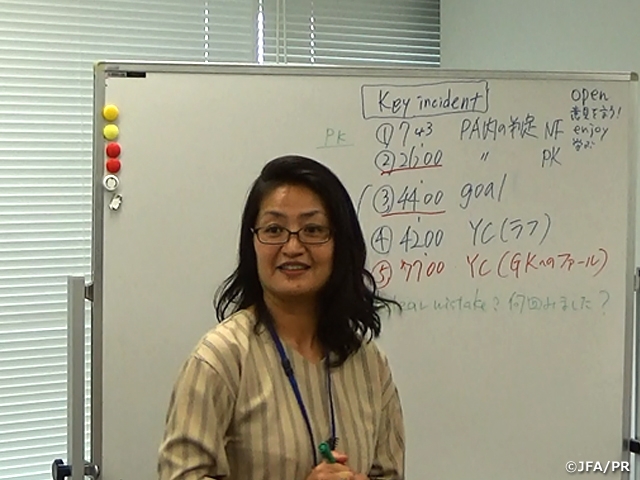 Key incident
① 7:43 PA内の判定 NF
PK
② 26:00 〃 PK
③ 44:00 goal
④ 42:00 YC(ラフ)
⑤ 77:00 YC(GKへのファール)
mistake? 何回みました?
open
意見を言う!
enjoy
学ぶ
©JFA/PR